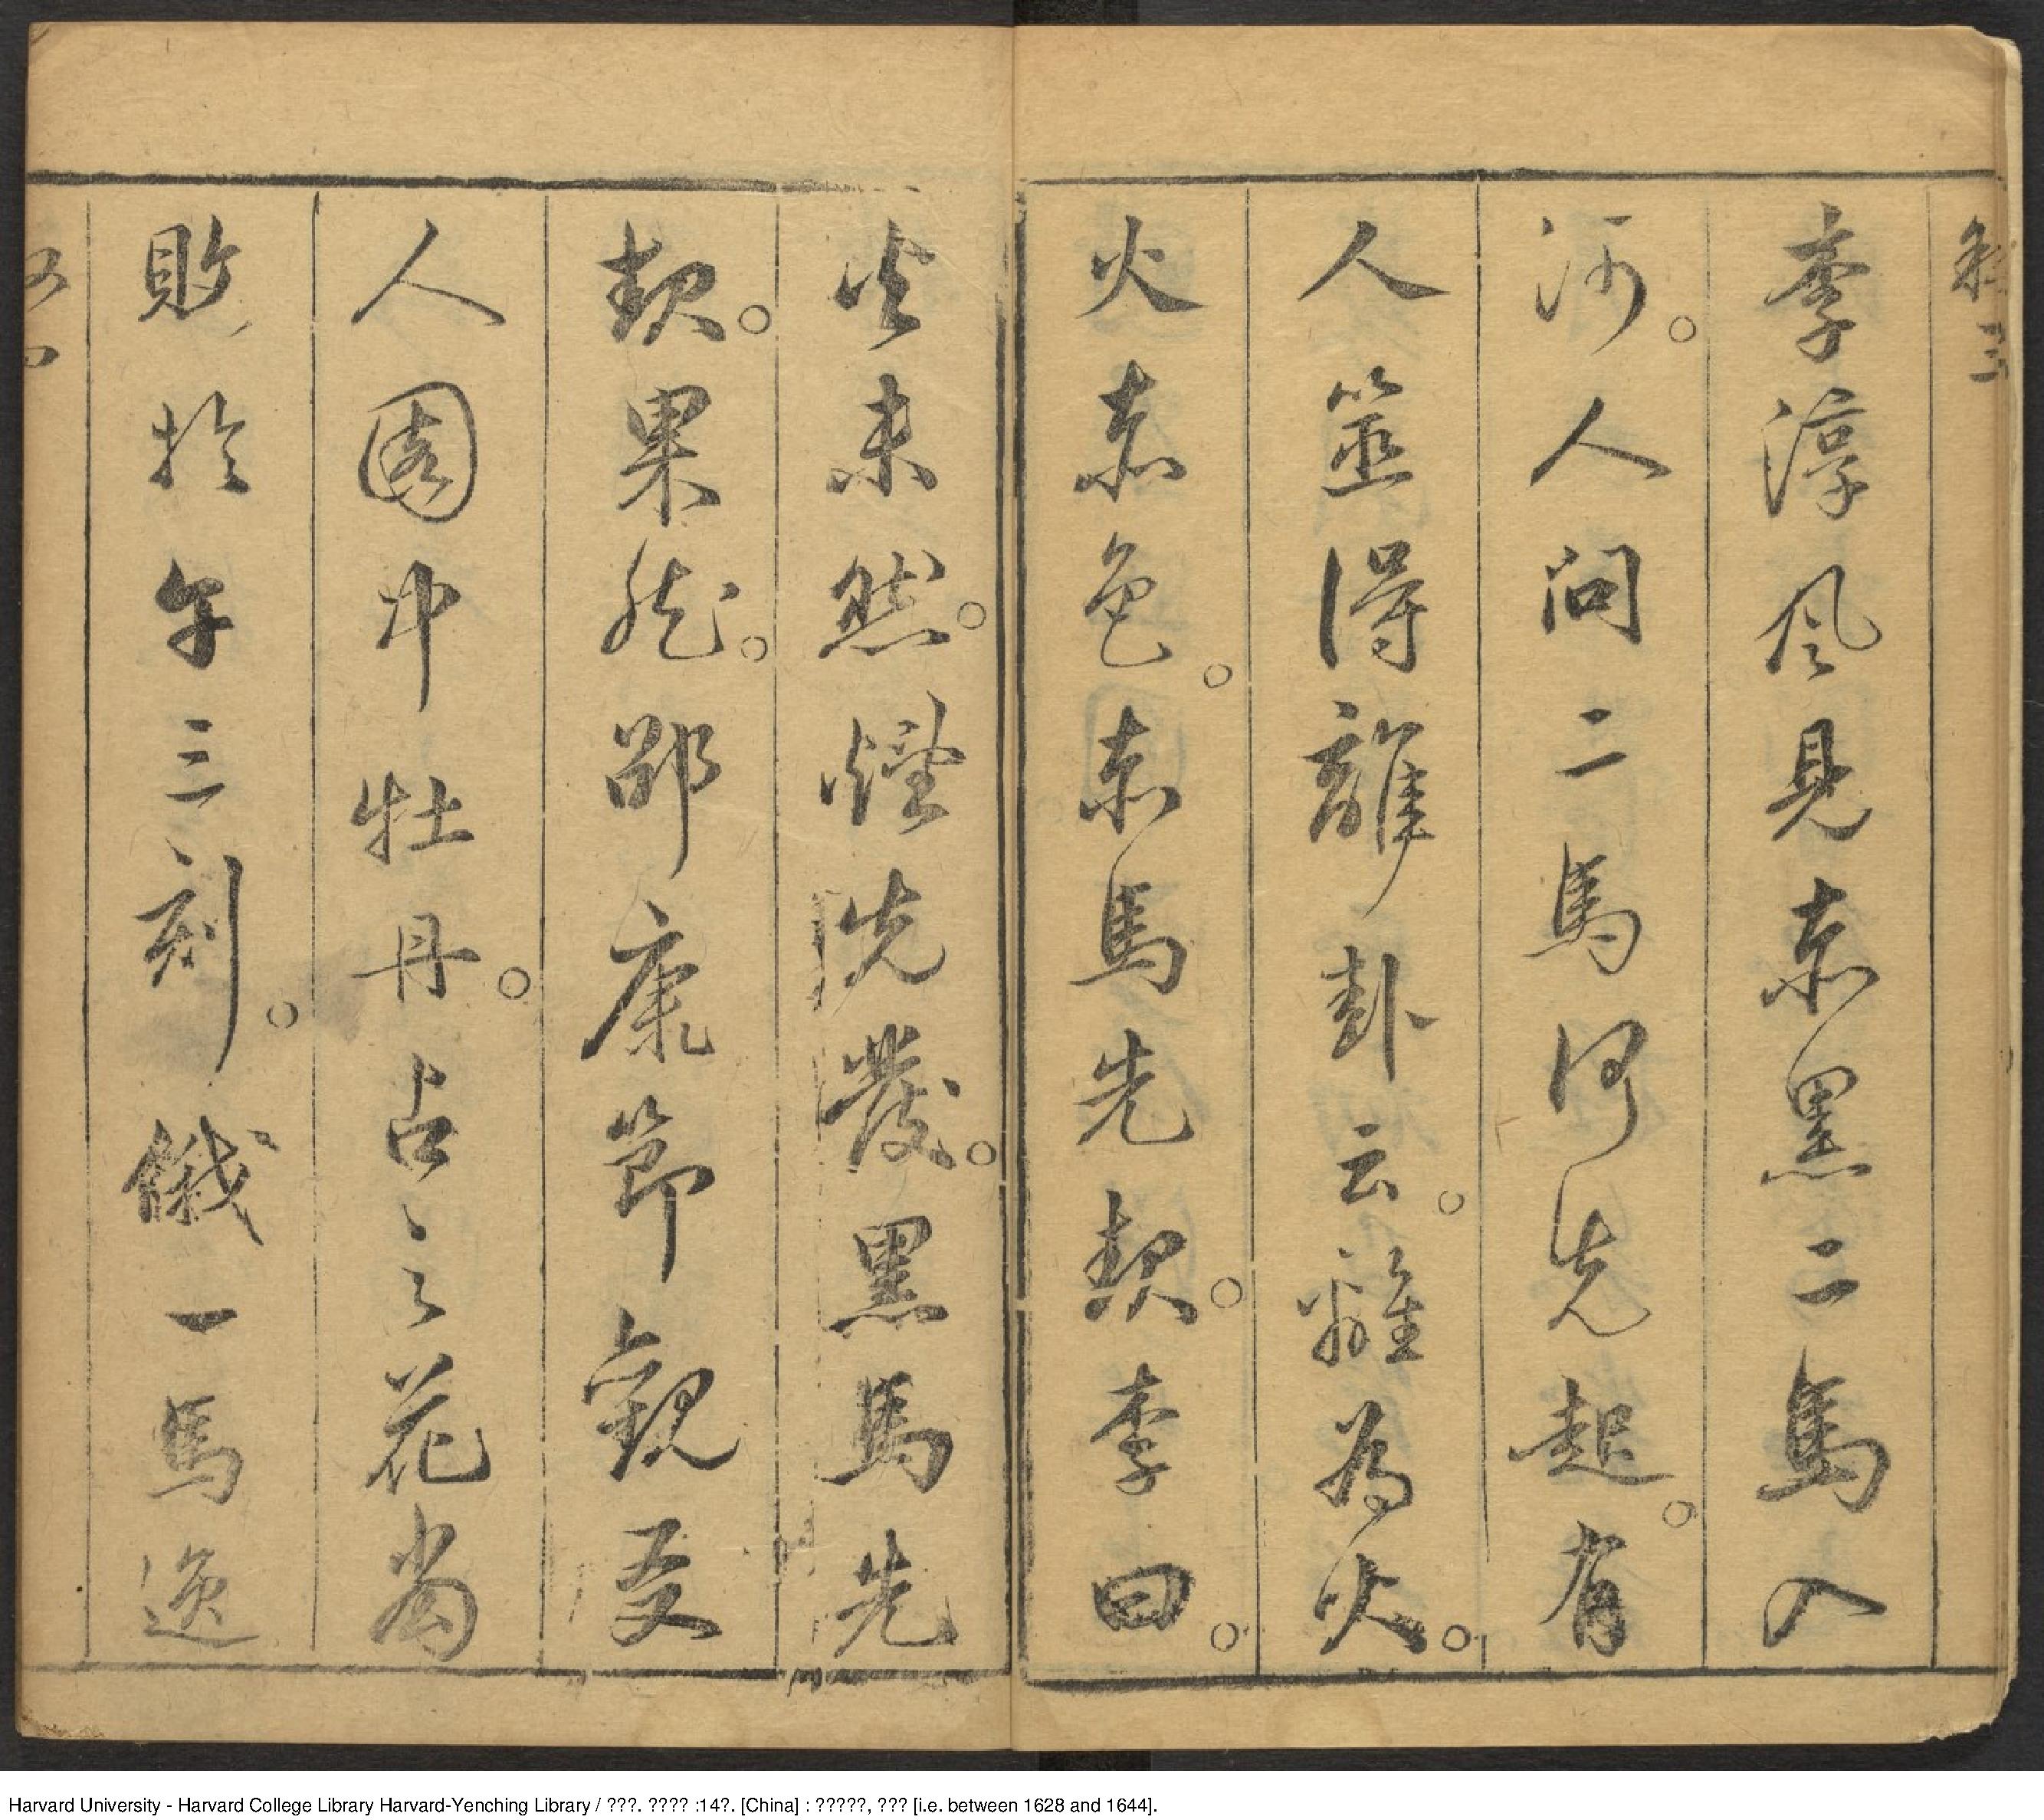 李淳風見赤黑二馬入
河。人問二馬何先起。有
人筮得離卦云。離為火。
火赤色。赤馬先起。李曰。
火未然。煙先發。黑馬先
起。果然。邵康節觀友
人園中牡丹。占之花當
敗於午三刻。俄一馬逸
Harvard University - Harvard College Library Harvard-Yenching Library / ???. ???? :14?. [China] : ?????, ??? [i.e. between 1628 and 1644].